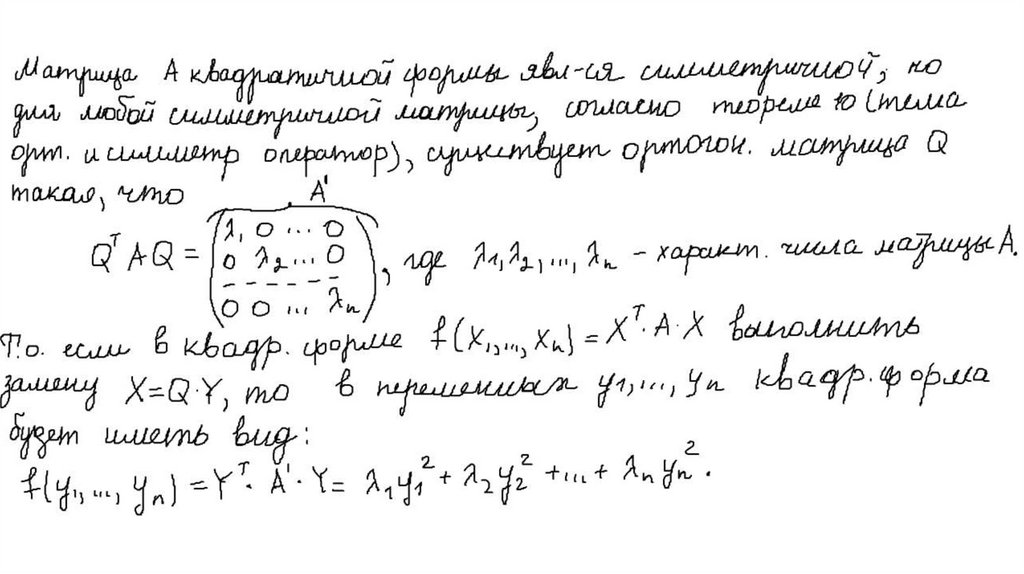 Матрица А квадратичной формы явл-ся симметричной, но
для любой симметричной матрицы, согласно теореме 10 (тема
орт. и симметр оператор), существует ортогон. матрица Q
такая, что
A'
Q^T A Q = (λ₁ 0 ... 0
0 λ₂ ... 0
- - - - - - -
0 0 ... λₙ), где λ₁, λ₂, ..., λₙ – характ. числа матрицы А.
Т.о. если в квадр. форме f(x₁,..., xₙ) = X^T · A · X выполнить
замену X=Q·Y, то в переменных y₁, ..., yₙ квадр. форма
будет иметь вид:
f(y₁, ..., yₙ) = Y^T · A' · Y = λ₁y₁² + λ₂y₂² + ... + λₙyₙ².